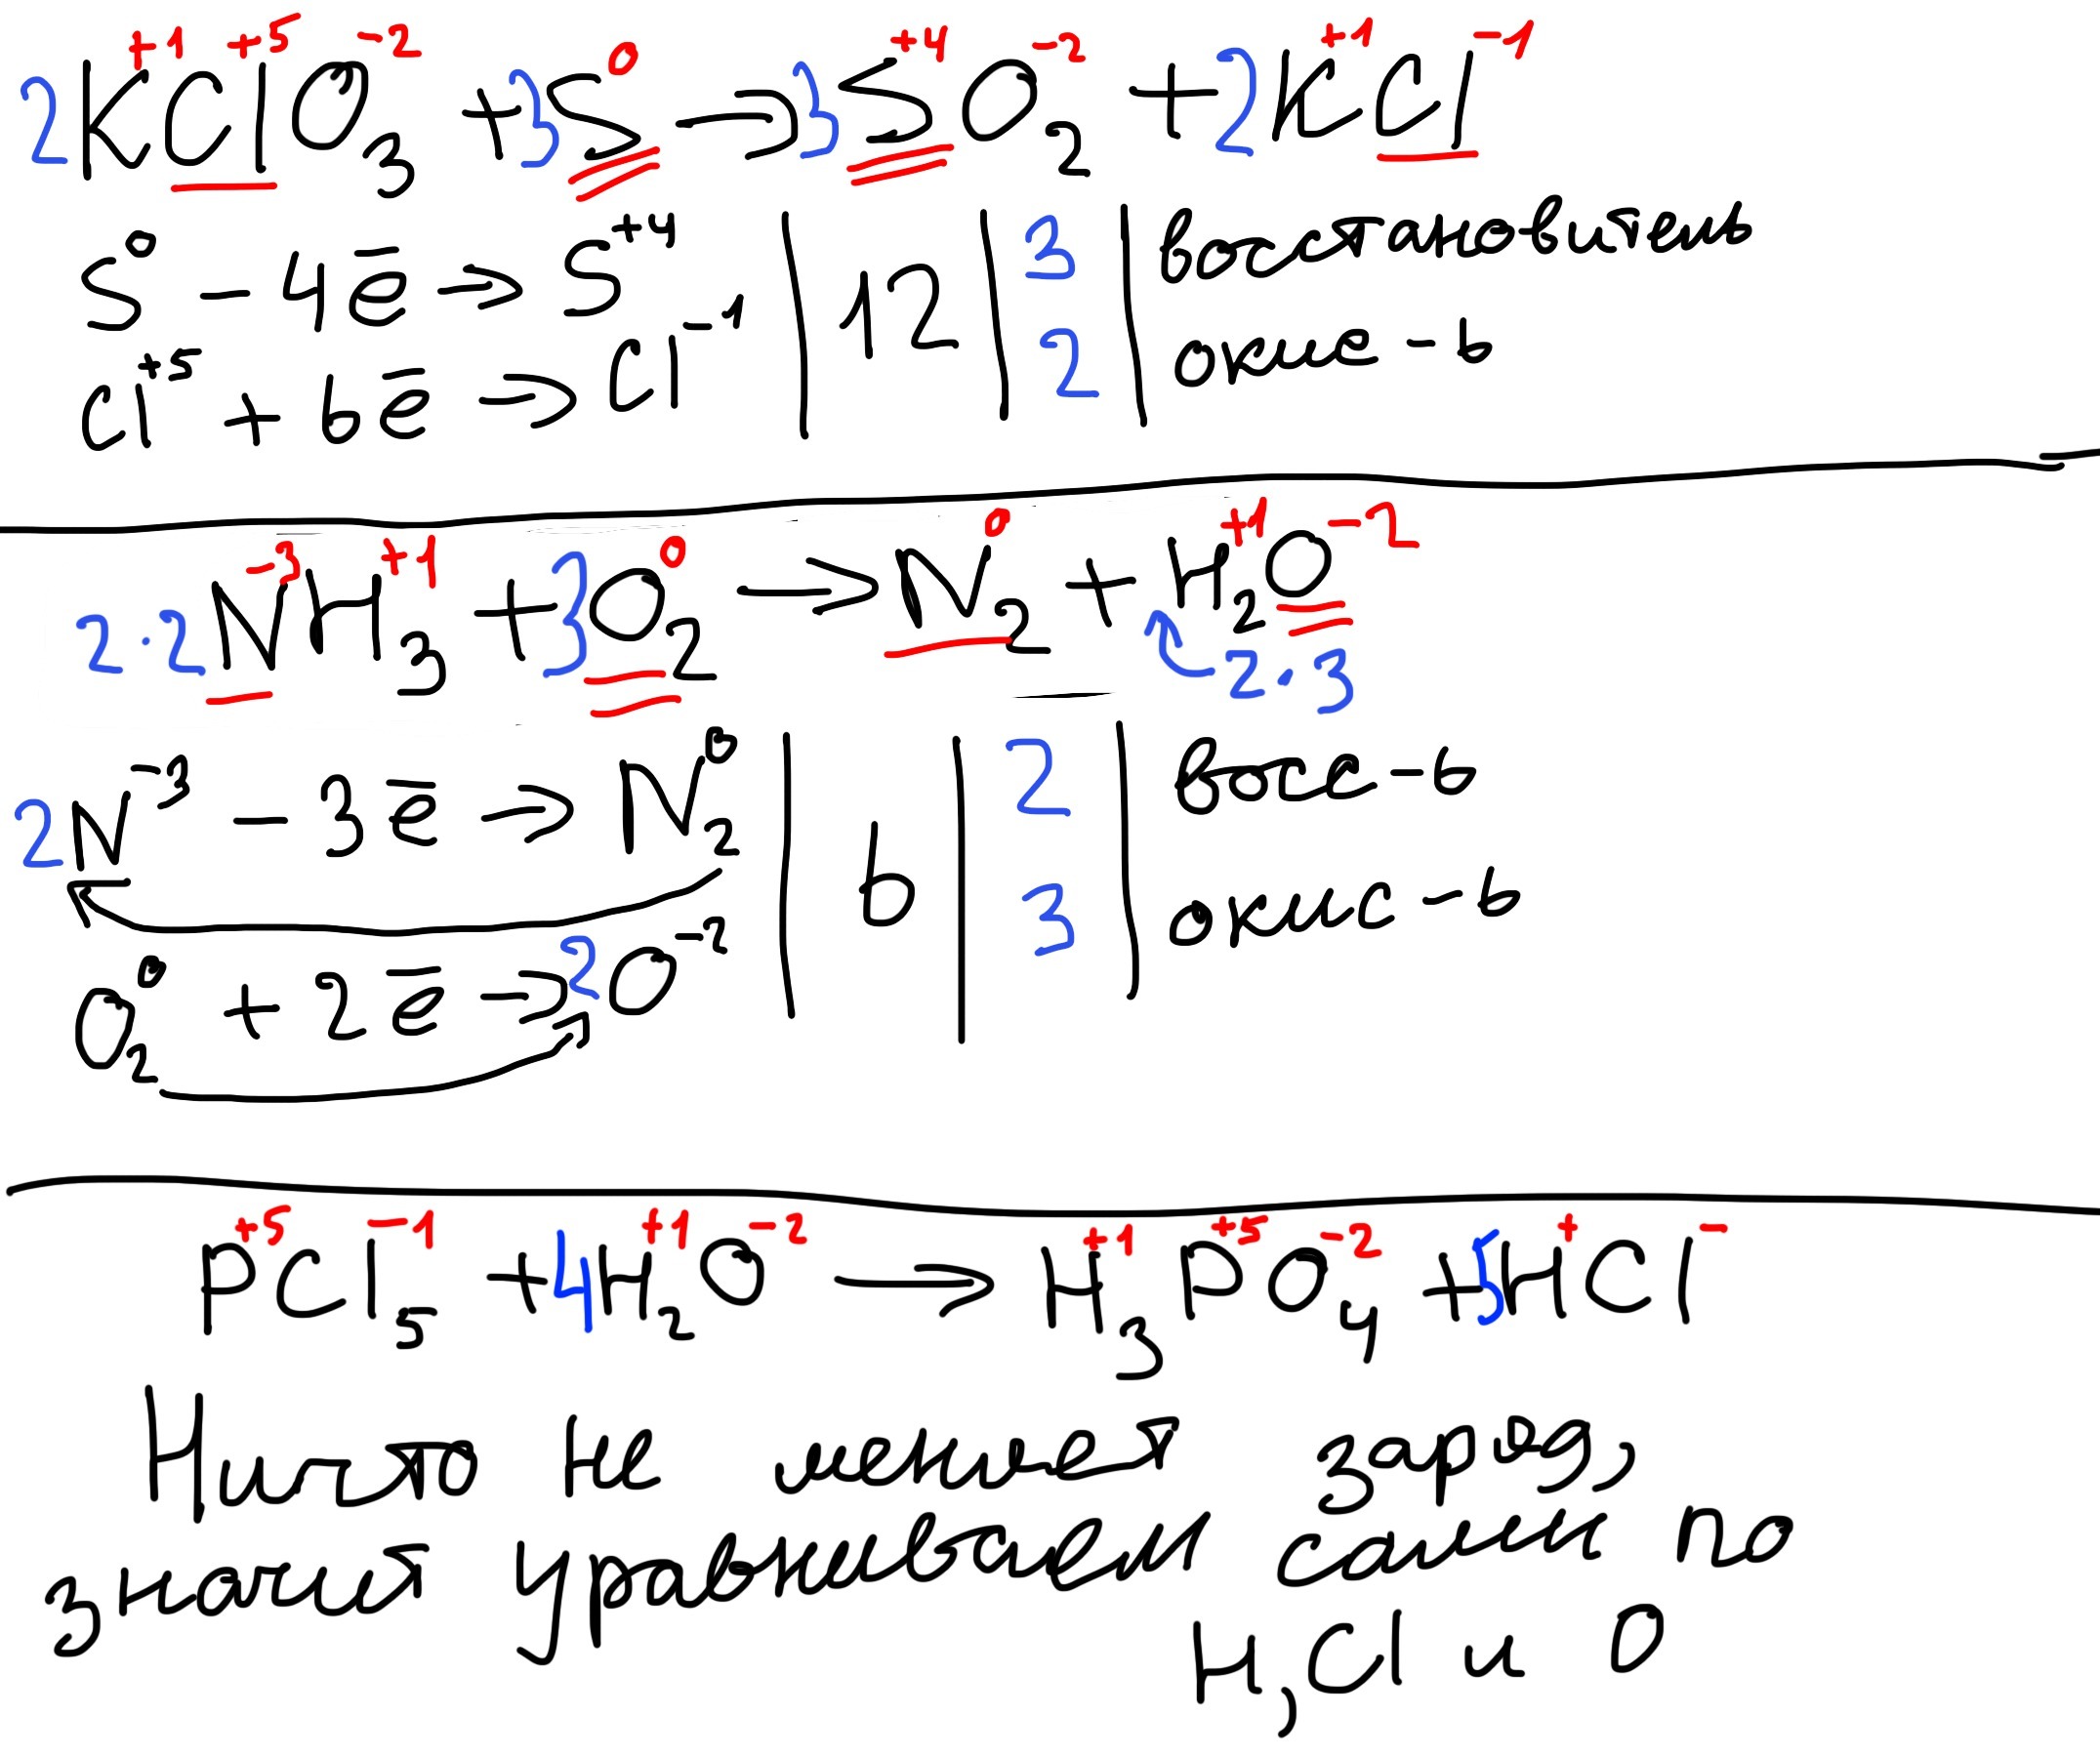 2K⁺¹Cl⁺⁵O₃⁻² + 3S⁰ → 3S⁺⁴O₂⁻² + 2K⁺¹Cl⁻¹
S⁰ − 4ē → S⁺⁴ | 12 | 3 | восстановитель
Cl⁺⁵ + 6ē → Cl⁻¹ | 2 | окис-ь
2·2N⁻³H₃⁺¹ + 3O₂⁰ → N₂⁰ + H₂⁺¹O⁻²
2·3
2N⁻³ − 3ē → N₂⁰ | 6 | 2 | восс-ь
O₂⁰ + 2ē → 2O⁻² | 3 | окис-ь
P⁺⁵Cl₅⁻¹ + 4H₂⁺¹O⁻² → H₃⁺¹P⁺⁵O₄⁻² + 5H⁺Cl⁻
Ничто не меняет заряд,
значит уравниваем сами по
H, Cl и O